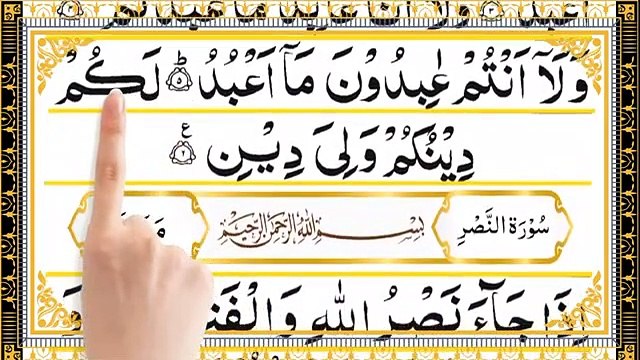 وَلَاۤ اَنْتُمْ عٰبِدُوْنَ مَاۤ اَعْبُدُ ؕ۵ لَكُمْ
دِيْنُكُمْ وَلِيَ دِيْنِ ع
سُوْرَةُ النَّصْرِ بِسْمِ اللهِ الرَّحْمٰنِ الرَّحِيْمِ
اِذَا جَآءَ نَصْرُ اللهِ وَالْفَتْ